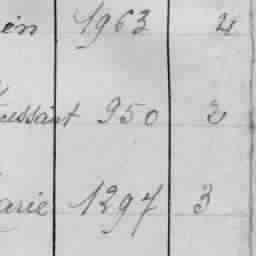 ien 1963 4
ussaint 950 2
arie 1297 3